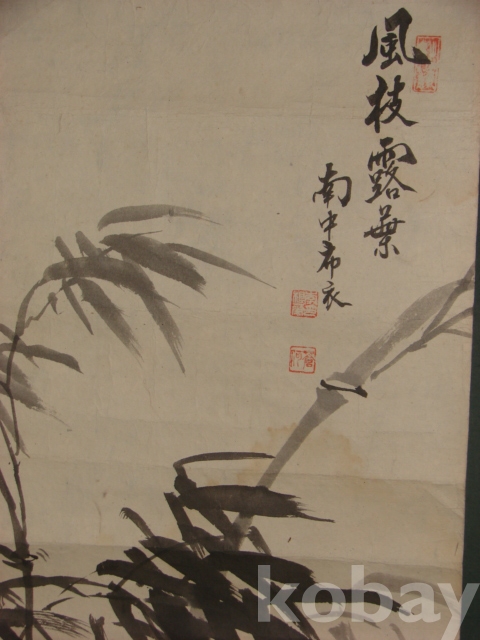 風枝露葉
南中布衣
kobay